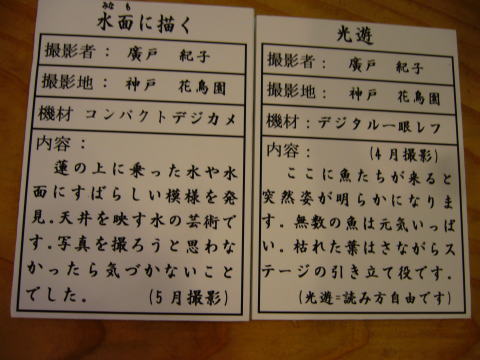 みなも
水面に描く
撮影者： 廣戸 紀子
撮影地： 神戸 花鳥園
機材 コンパクトデジカメ
内容：
蓮の上に乗った水や水
面にすばらしい模様を発
見.天井を映す水の芸術で
す.写真を撮ろうと思わな
かったら気づかないこと
でした． (5月撮影)
光遊
撮影者： 廣戸 紀子
撮影地： 神戸 花鳥園
機材：デジタル一眼レフ
内容： (4月撮影)
ここに魚たちが来ると
突然姿が明らかになりま
す．無数の魚は元気いっぱ
い．枯れた葉はさながらス
テージの引き立て役です．
(光遊=読み方自由です)